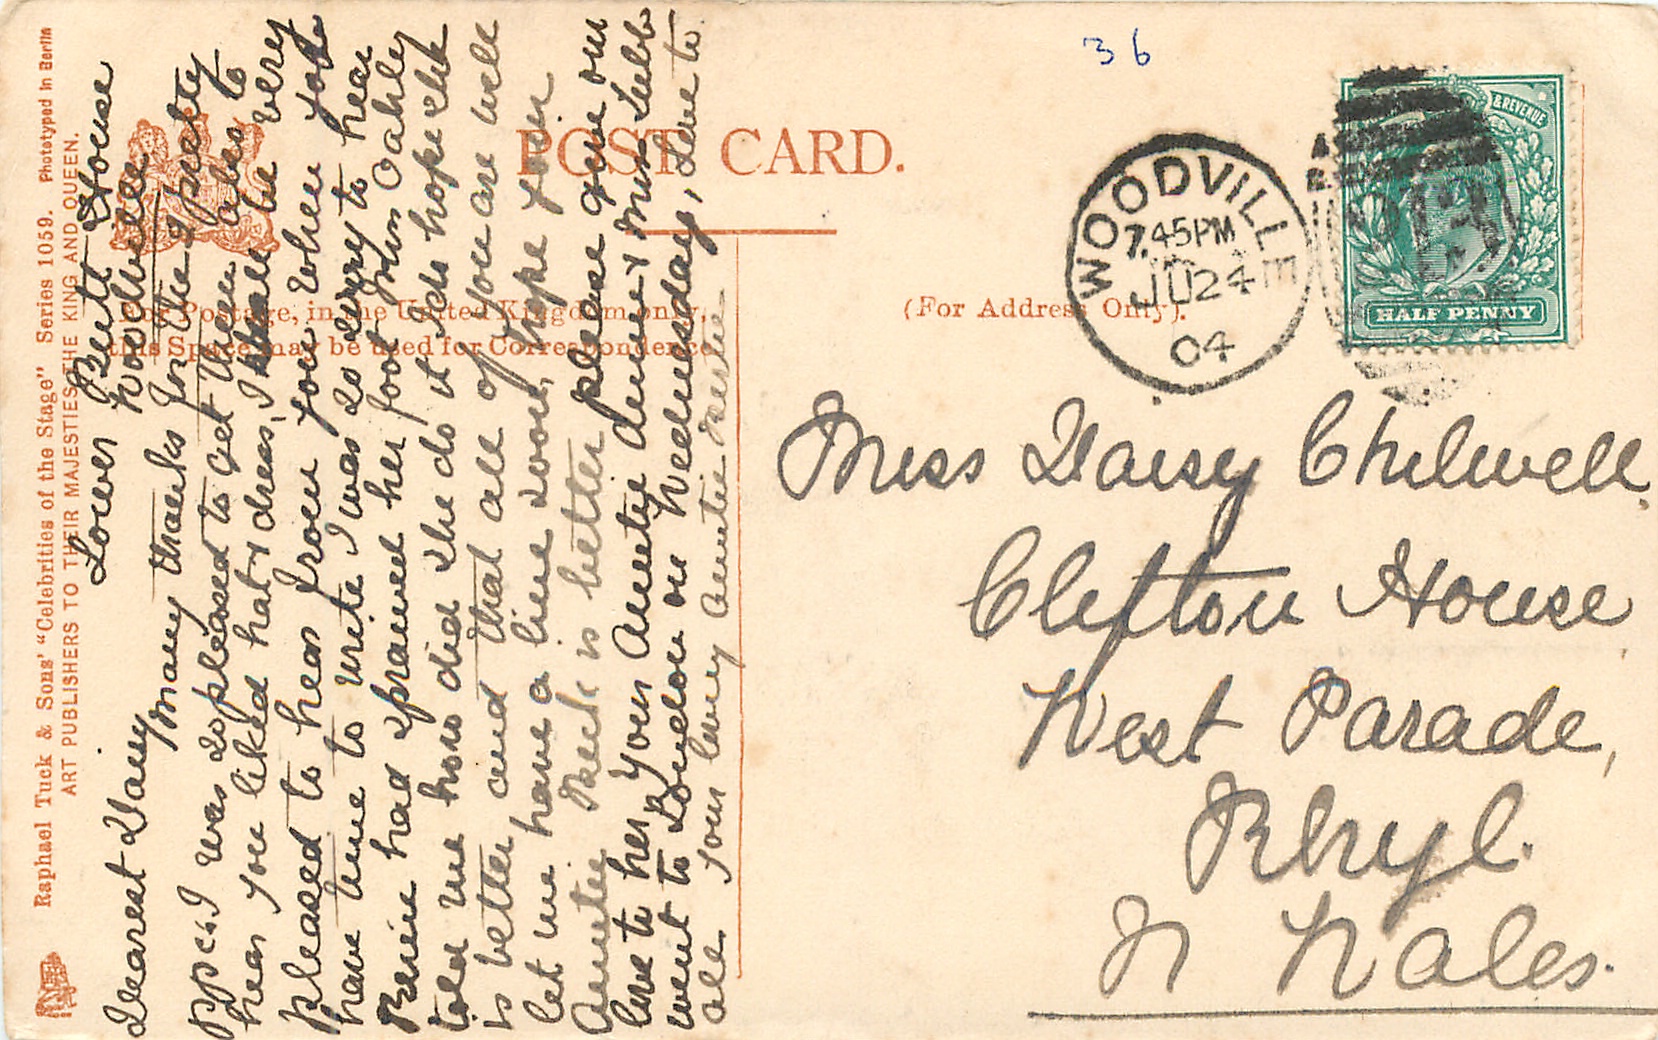 Raphael Tuck & Sons' "Celebrities of the Stage" Series 1059. Phototyped in Berlin
ART PUBLISHERS TO THEIR MAJESTIES THE KING AND QUEEN.
POST CARD.
For Postage, in the United Kingdom only,
this Space may be used for Correspondence
(For Address Only).
36
WOODVILLE
7.45PM
JU 24
04
& REVENUE
HALF PENNY
House
Woodville
Dearest Daisy
Many thanks for the 4 pretty
ppcs. I was so pleased to get them also to
hear you liked hat & dress, I shall be very
pleased to hear from you when you
have time to write I was so sorry to hear
had sprained her foot Miss Oakley
told me how did she do it I do hope she
is better and that all of you are well
let me have a line soon, hope your
Auntie is better please give our
love to her your Auntie &
went to London on Wednesday, Love to
all. Your Auntie
Miss Daisy Chilwell.
Clifton House
West Parade,
Rhyl.
N Wales.